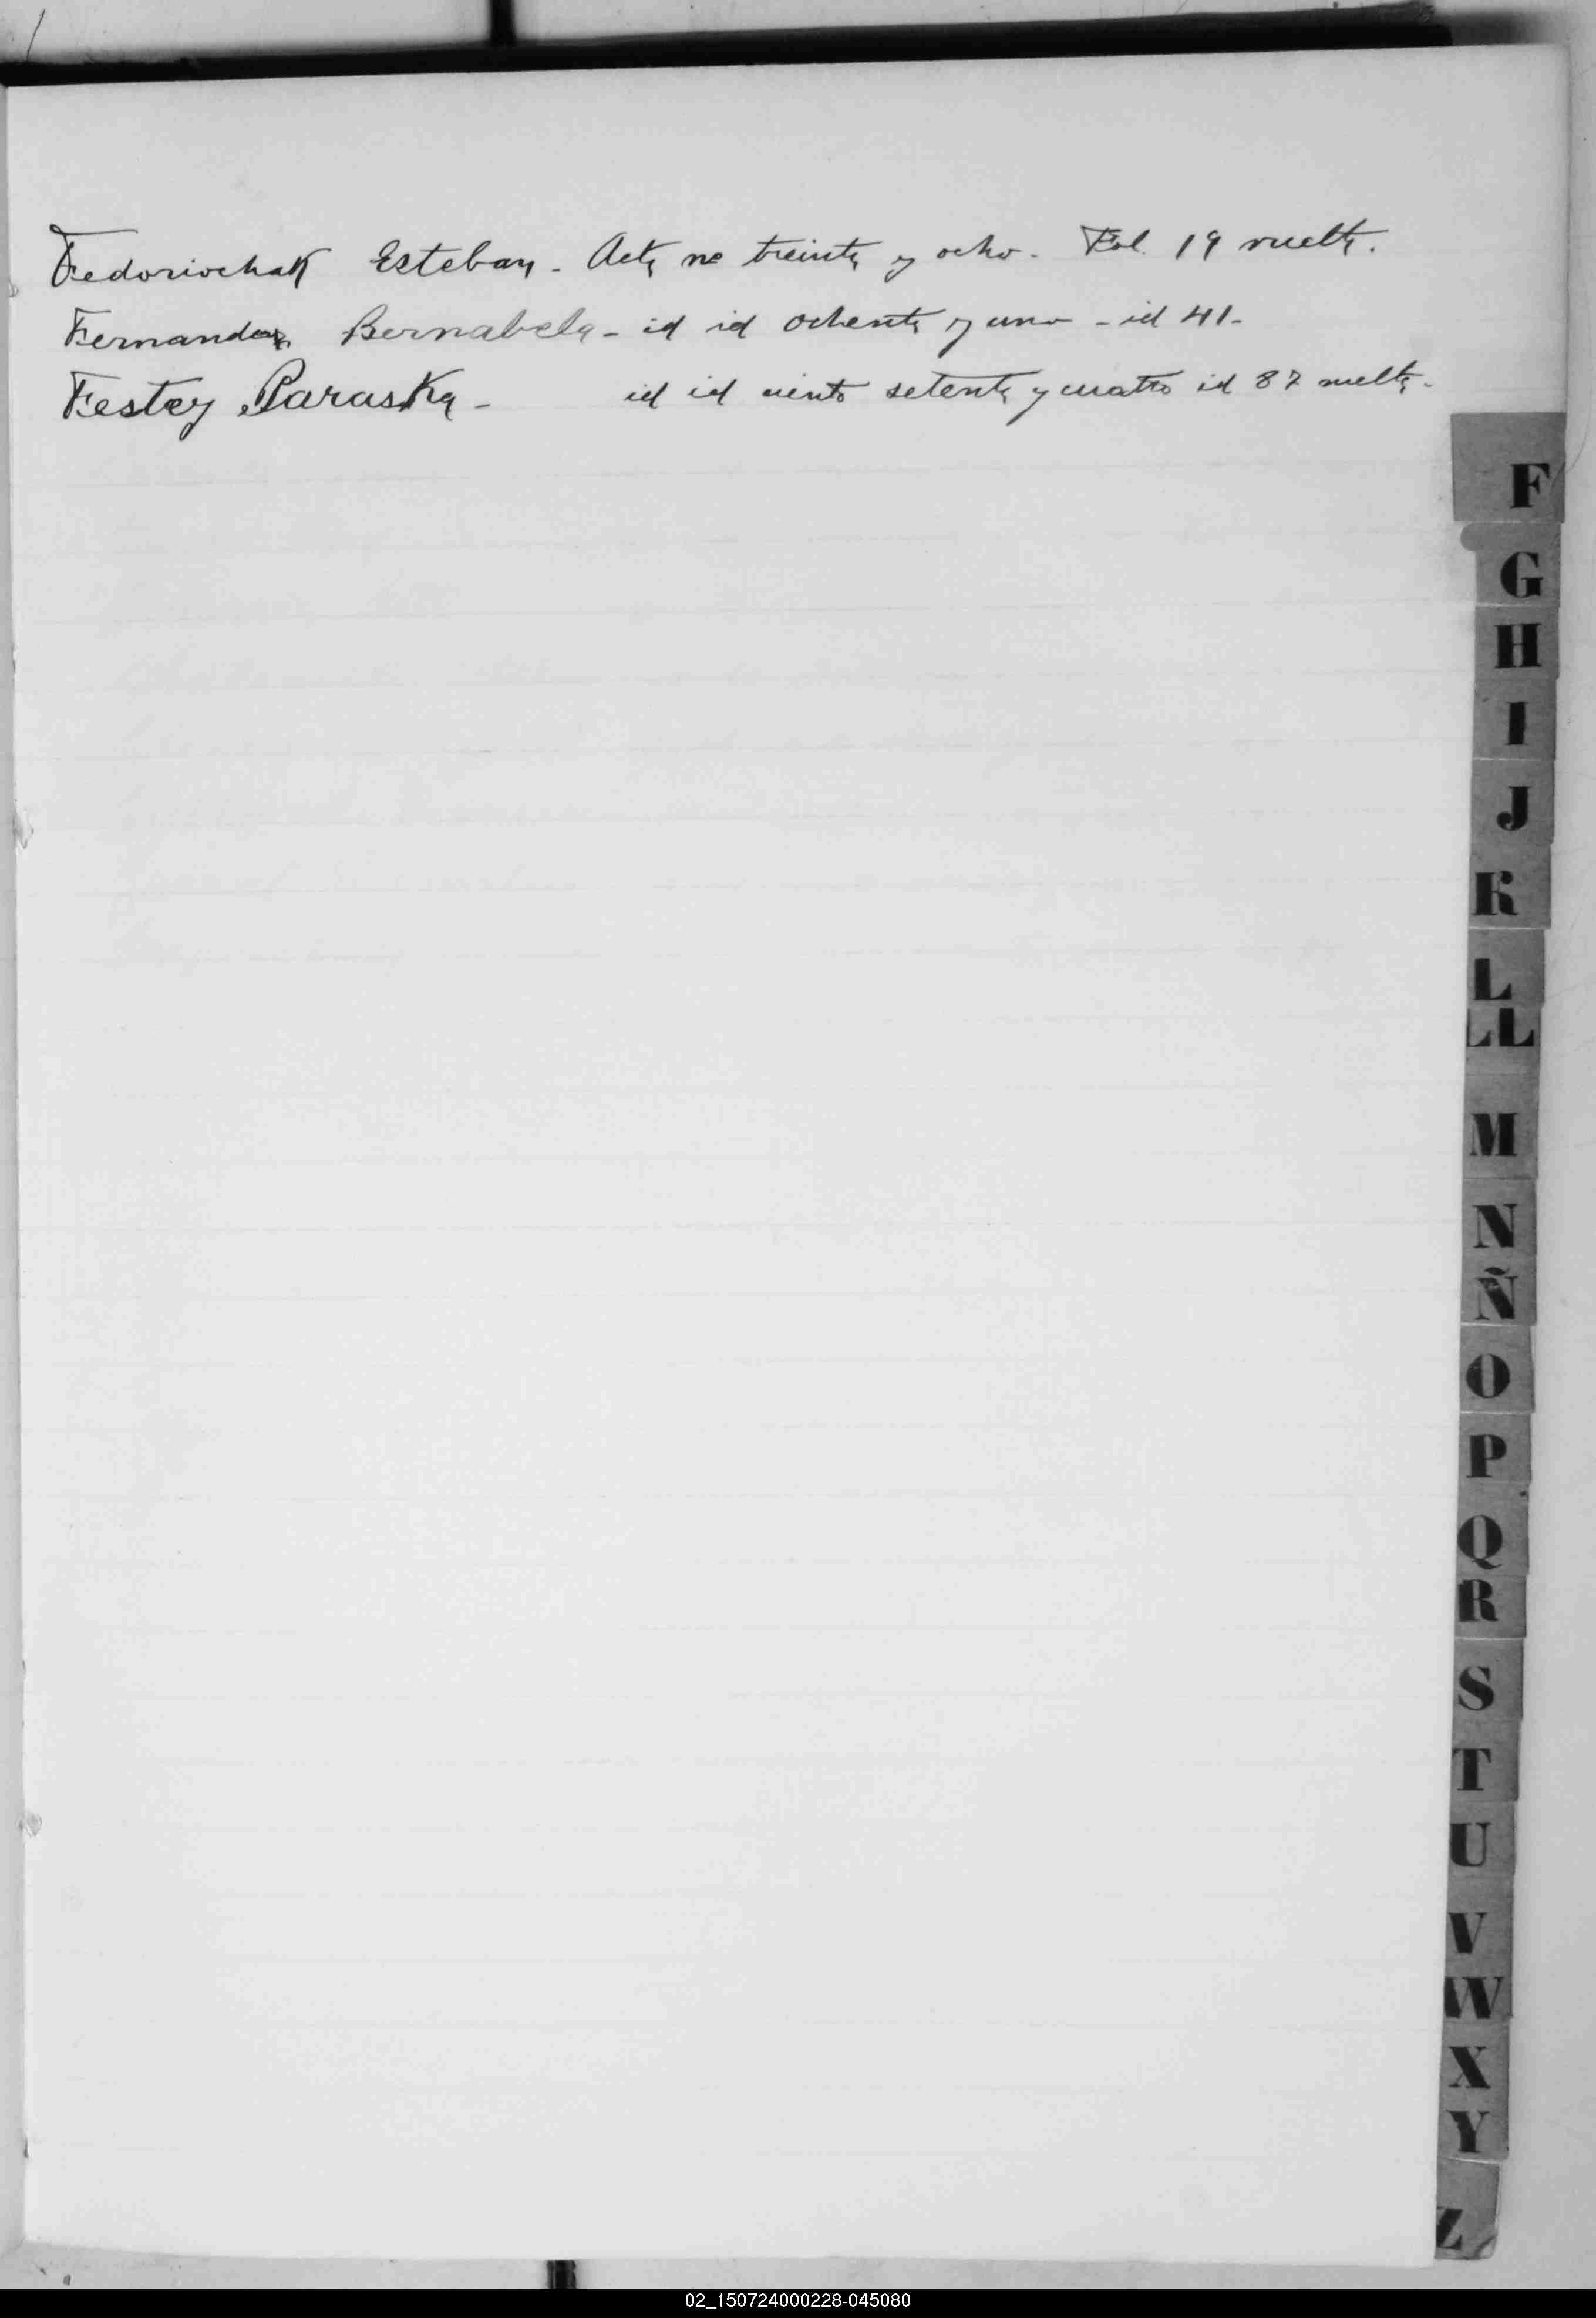 Fedoriochak Esteban - Acta no treinta y ocho - Fol. 19 vuelta.
Fernandez Bernabela - id id ochenta y uno - id 41 -
Festey Paraska - id id ciento setenta y cuatro id 87 vuelta -
F
G
H
I
J
K
L
LL
M
N
Ñ
O
P
Q
R
S
T
U
V
W
X
Y
Z
02_150724000228-045080